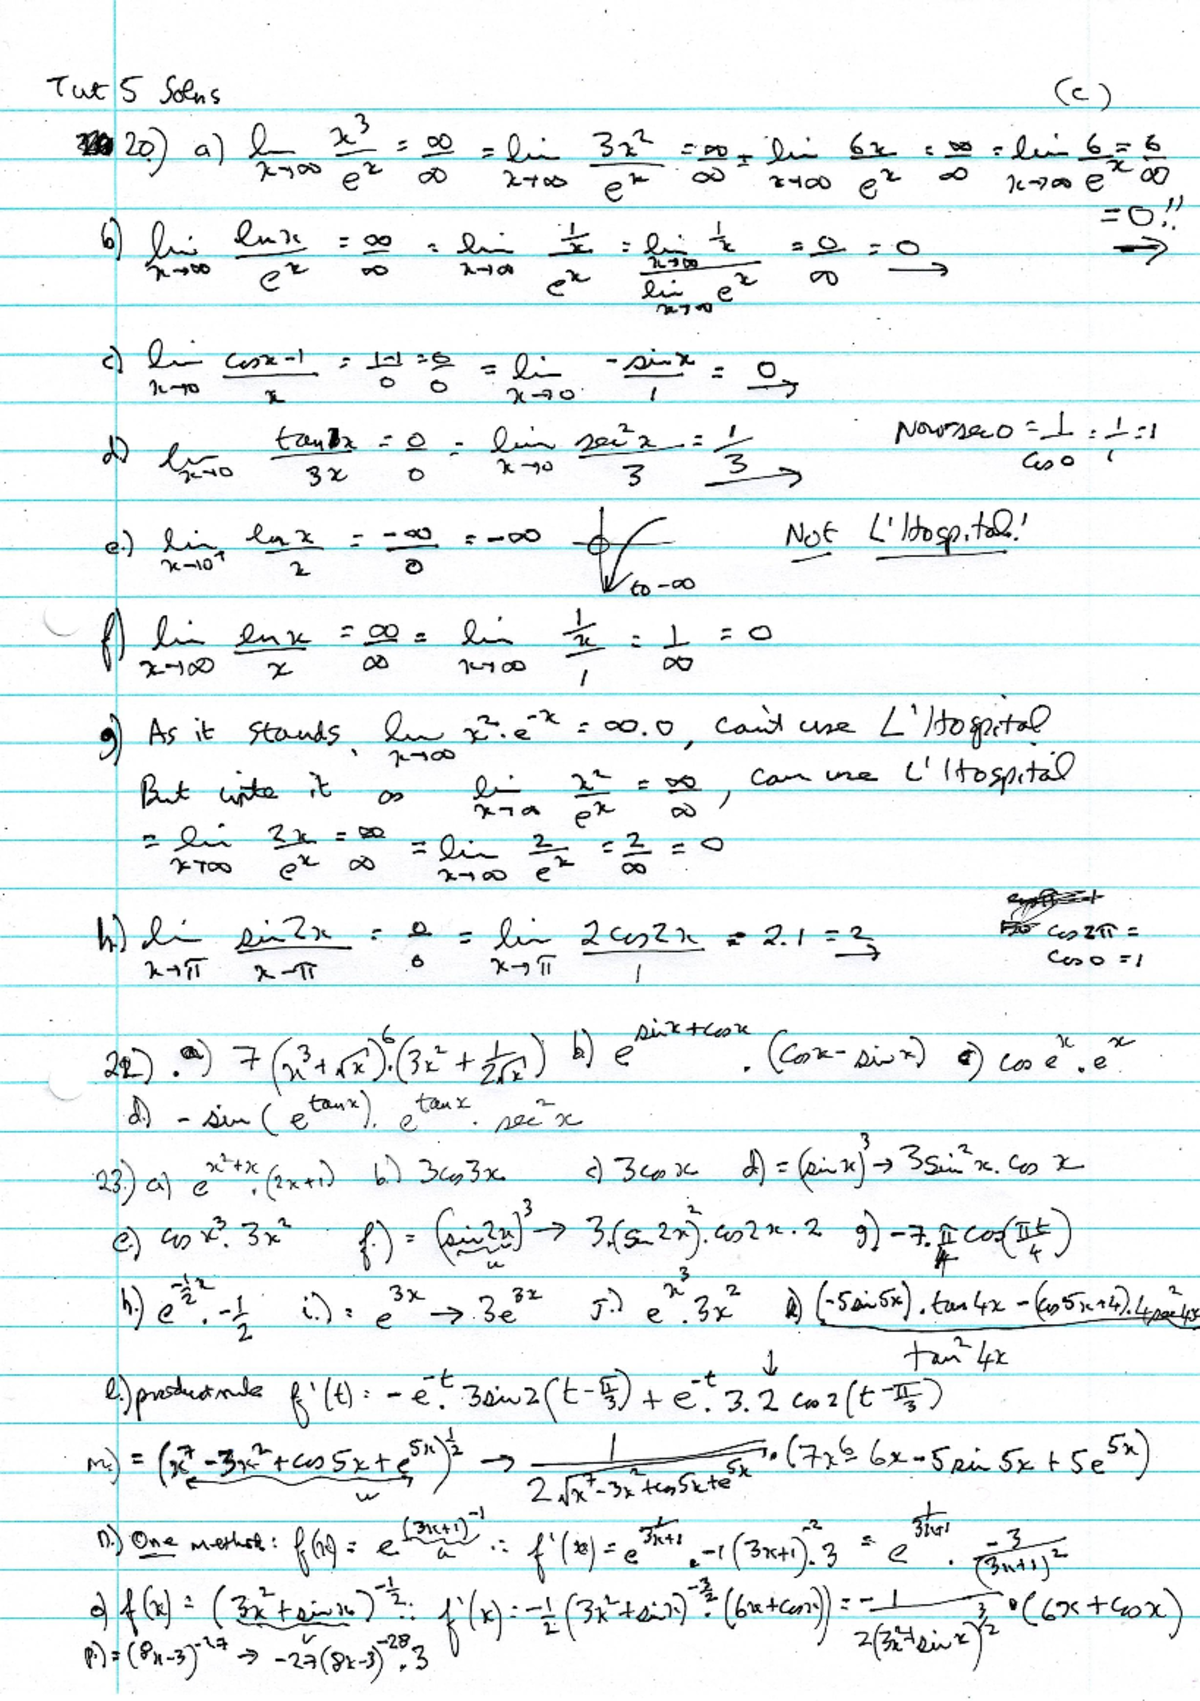 Tut 5 Solns (c)
20.) a) lim x→∞ x³/eˣ = ∞/∞ = lim x→∞ 3x²/eˣ = ∞/∞ = lim x→∞ 6x/eˣ = ∞/∞ = lim x→∞ 6/eˣ = 6/∞
= 0!!
b) lim x→∞ lnx/eˣ = ∞/∞ = lim x→∞ (1/x)/eˣ = (lim x→∞ 1/x)/(lim x→∞ eˣ) = 0/∞ = 0
c) lim x→0 (cosx-1)/x = (1-1)/0 = 0/0 = lim x→0 -sinx/1 = 0
d) lim x→0 tanx/3x = 0/0 = lim x→0 sec²x/3 = 1/3 Now sec0 = 1/cos0 = 1/1 = 1
e.) lim x→0⁺ lnx/x = -∞/0 = -∞ to -∞ Not L'Hospital!
f) lim x→∞ lnx/x = ∞/∞ = lim x→∞ (1/x)/1 = 1/∞ = 0
g) As it stands, lim x→∞ x².e⁻ˣ = ∞.0, can't use L'Hospital
But write it as lim x→∞ x²/eˣ = ∞/∞, can use L'Hospital
= lim x→∞ 2x/eˣ = ∞/∞ = lim x→∞ 2/eˣ = 2/∞ = 0
h) lim x→π sin2x/(x-π) = 0/0 = lim x→π 2cos2x/1 = 2.1 = 2 cos2π =
cos0 = 1
22). a) 7(x³+√x)⁶.(3x² + 1/(2√x)) b) e^(sinx+cosx) . (cosx-sinx) c) cos eˣ . eˣ
d) -sin(e^(tanx)). e^(tanx) . sec²x
23.) a) e^(x²+x).(2x+1) b.) 3cos3x c) 3cosx d) = (sinx)³ → 3sin²x. cosx
e.) cos x³. 3x² f.) = (sin2x)³ → 3.(sin2x)². cos2x.2 g) -7.π/4 cos(πt/4)
u
h.) e^(-½x) . -1/2 i.) = e^(3x) → 3e^(3x) J.) e^(x³). 3x² k) ((-5sin5x).tan4x - (cos5x+4).4sec²4x)/tan²4x
l.) product rule f'(t) = -e⁻ᵗ. 3sin2(t-π/3) + e⁻ᵗ. 3.2 cos2(t-π/3)
m.) = (x⁷-3x²+cos5x+e^(5x))^(1/2) → 1/(2√(x⁷-3x²+cos5x+e^(5x))) . (7x⁶-6x-5sin5x+5e^(5x))
u
n.) One method: f(x) = e^((3x+1)⁻¹) ∴ f'(x) = e^(1/(3x+1)) . -1(3x+1)⁻². 3 = e^(1/(3x+1)) . -3/(3x+1)²
u
o) f(x) = (3x²+sinx)^(-1/2) ∴ f'(x) = -1/2 (3x²+sinx)^(-3/2).(6x+cosx) = -1/(2(3x²+sinx)^(3/2)) . (6x+cosx)
p.) = (8x-3)⁻²⁷ → -27(8x-3)⁻²⁸. 3